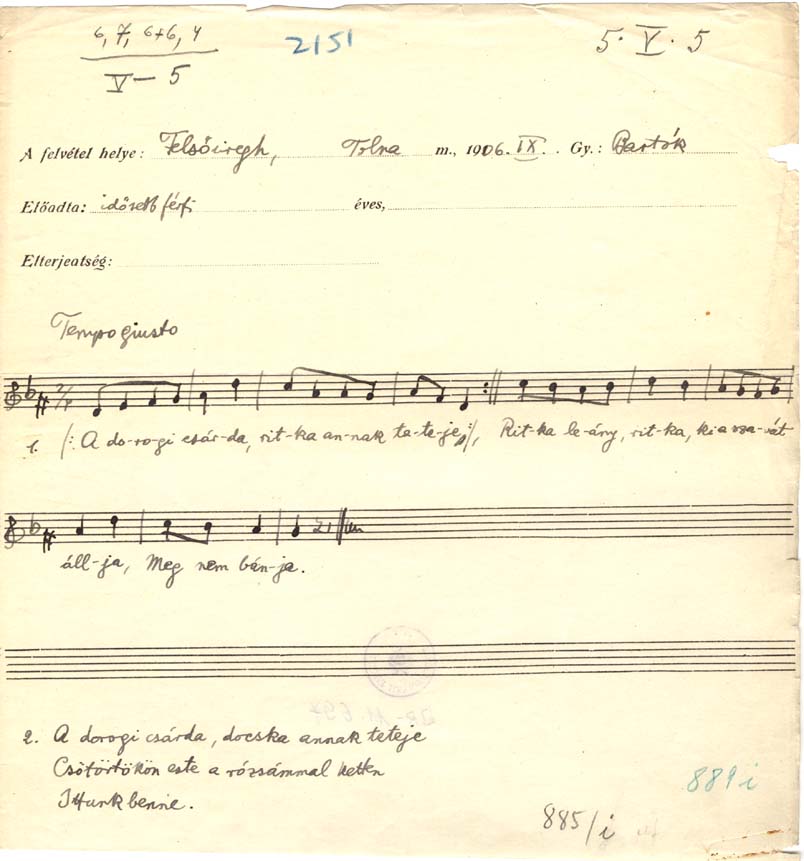 6, 7, 6+6, 4
V - 5
2151
5. V. 5
A felvétel helye: Felsőiregh, Tolna m., 1906. IX. Gy.: Bartók
Előadta: idősebb férfi éves,
Elterjeatség:
Tempo giusto
1. /: A do-ro-gi csár-da, rit-ka an-nak te-te-je, :/, Rit-ka le-ány, rit-ka, ki a sza-vát
áll-ja, Meg nem bán-ja.
2. A dorogi csárda, docska annak teteje
Csötörtökön este a rózsámmal ketten
Ittunk benne.
881 i
885/i